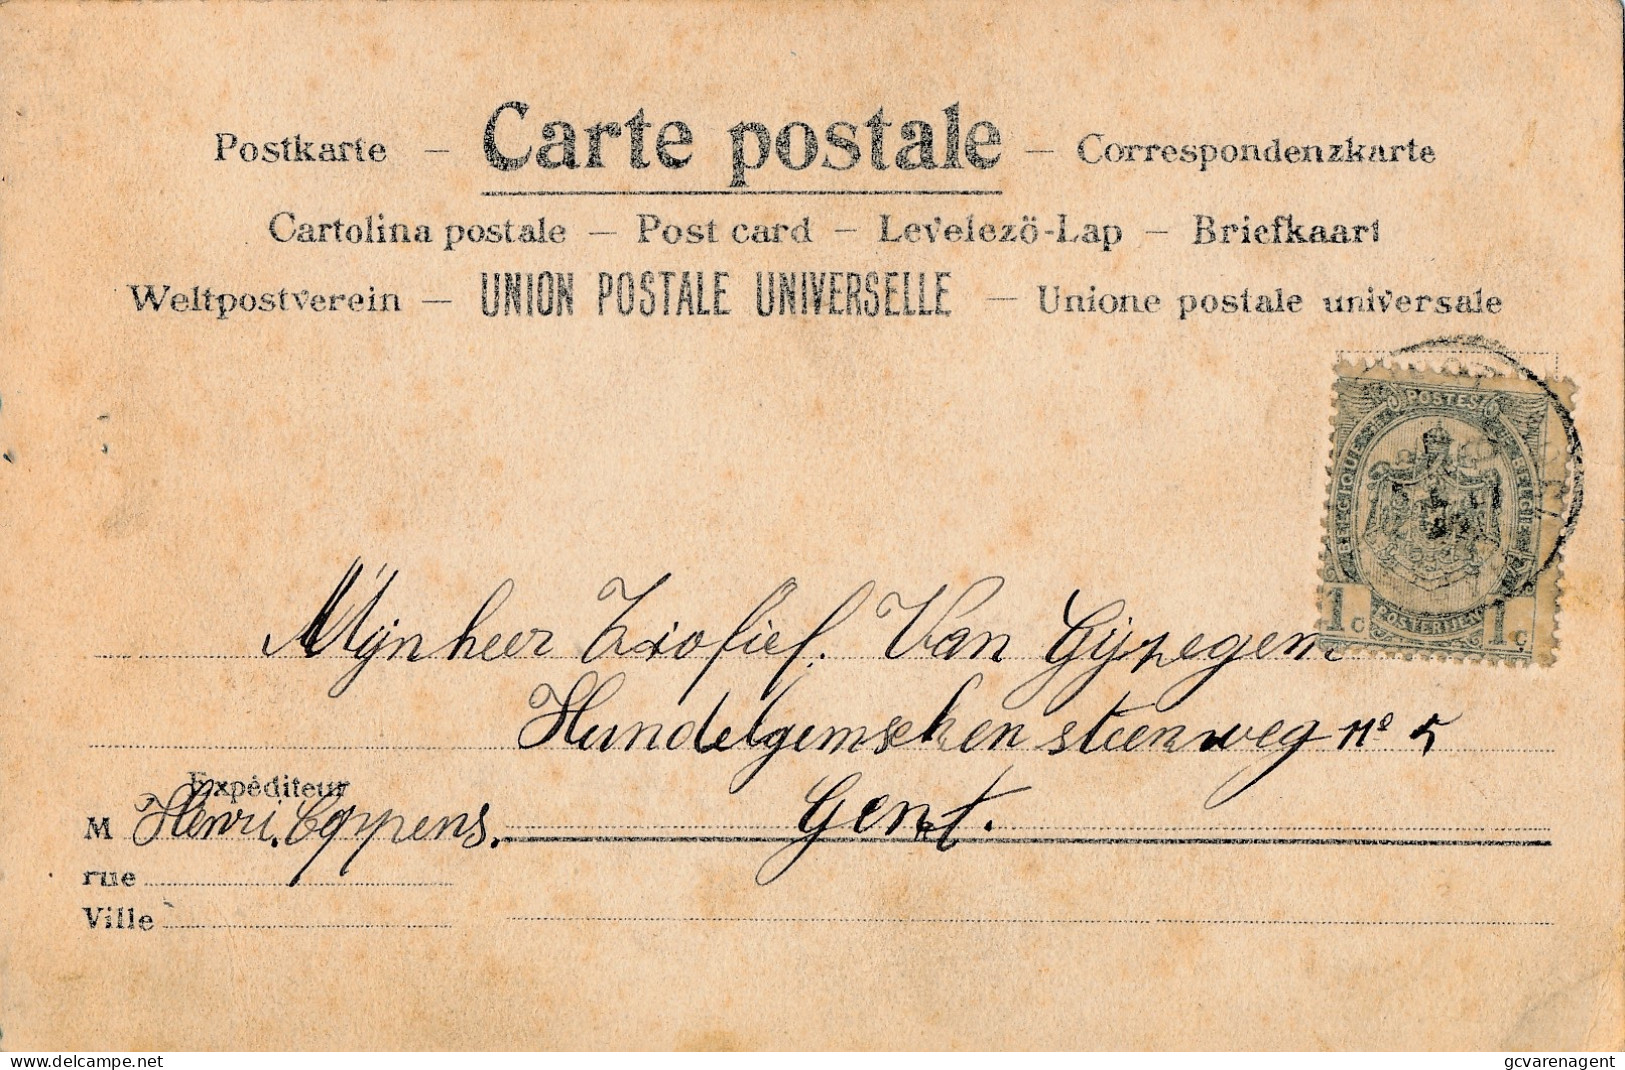 Postkarte – Carte postale – Correspondenzkarte
Cartolina postale – Post card – Levelezö-Lap – Briefkaart
Weltpostverein – UNION POSTALE UNIVERSELLE – Unione postale universale
POSTES
BELGIQUE
BELGIE
1 c POSTERIJEN 1 c
Mijnheer Van Gijzegem
steenweg nº 5
Gent.
Expéditeur
M Henri Coppens.
rue
Ville
delcampe.net
gcvarenagent